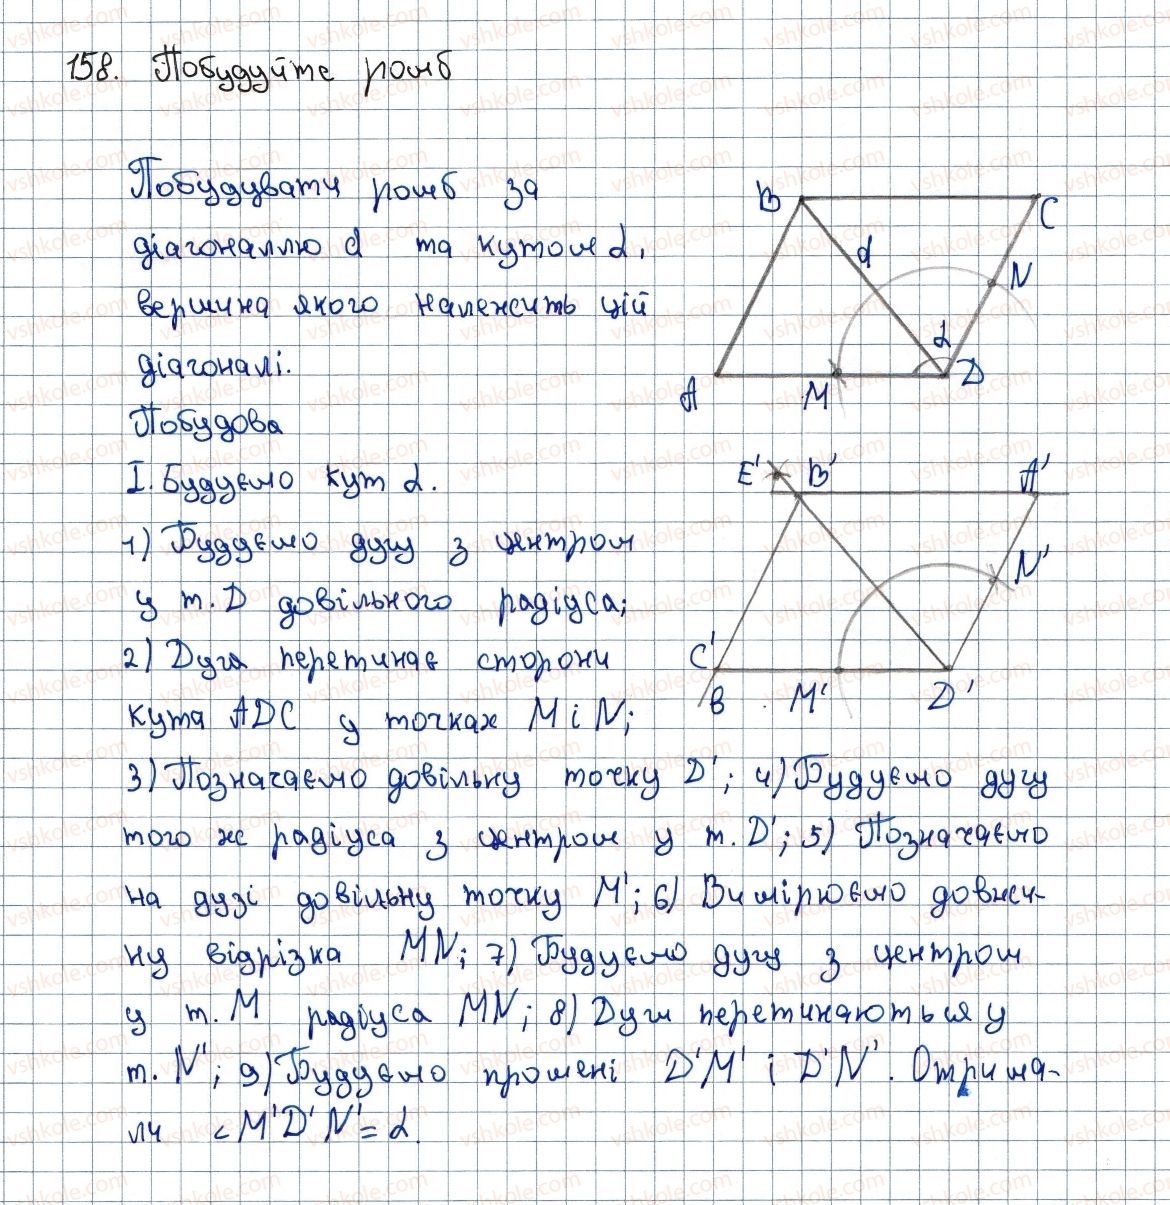 158. Побудуйте ромб
Побудувати ромб за
діагоналлю d та кутом α,
вершина якого належить цій
діагоналі.
Побудова
I. Будуємо кут α.
1) Будуємо дугу з центром
у т. D довільного радіуса;
2) Дуга перетинає сторони
кута ADC у точках M і N;
3) Позначаємо довільну точку D'; 4) Будуємо дугу
того ж радіуса з центром у т. D'; 5) Позначаємо
на дузі довільну точку M'; 6) Вимірюємо довжи-
ну відрізка MN; 7) Будуємо дугу з центром
у т. M радіуса MN; 8) Дуги перетинаються у
т. N'; 9) Будуємо промені D'M' і D'N'. Отрима-
ли <M'D'N' = α.
B
C
d
N
α
A
M
D
E'
B'
A'
N'
C'
B
M'
D'
vshkole.com